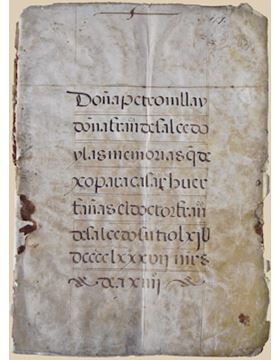 Doña petronilla y
doña frañ de salcedo
y las memorias q̃ de
xo para casar huer
fañas el doctor frañ
de salcedo su tio lxiiij
dcccclxxxvij mrs
de a xiiij